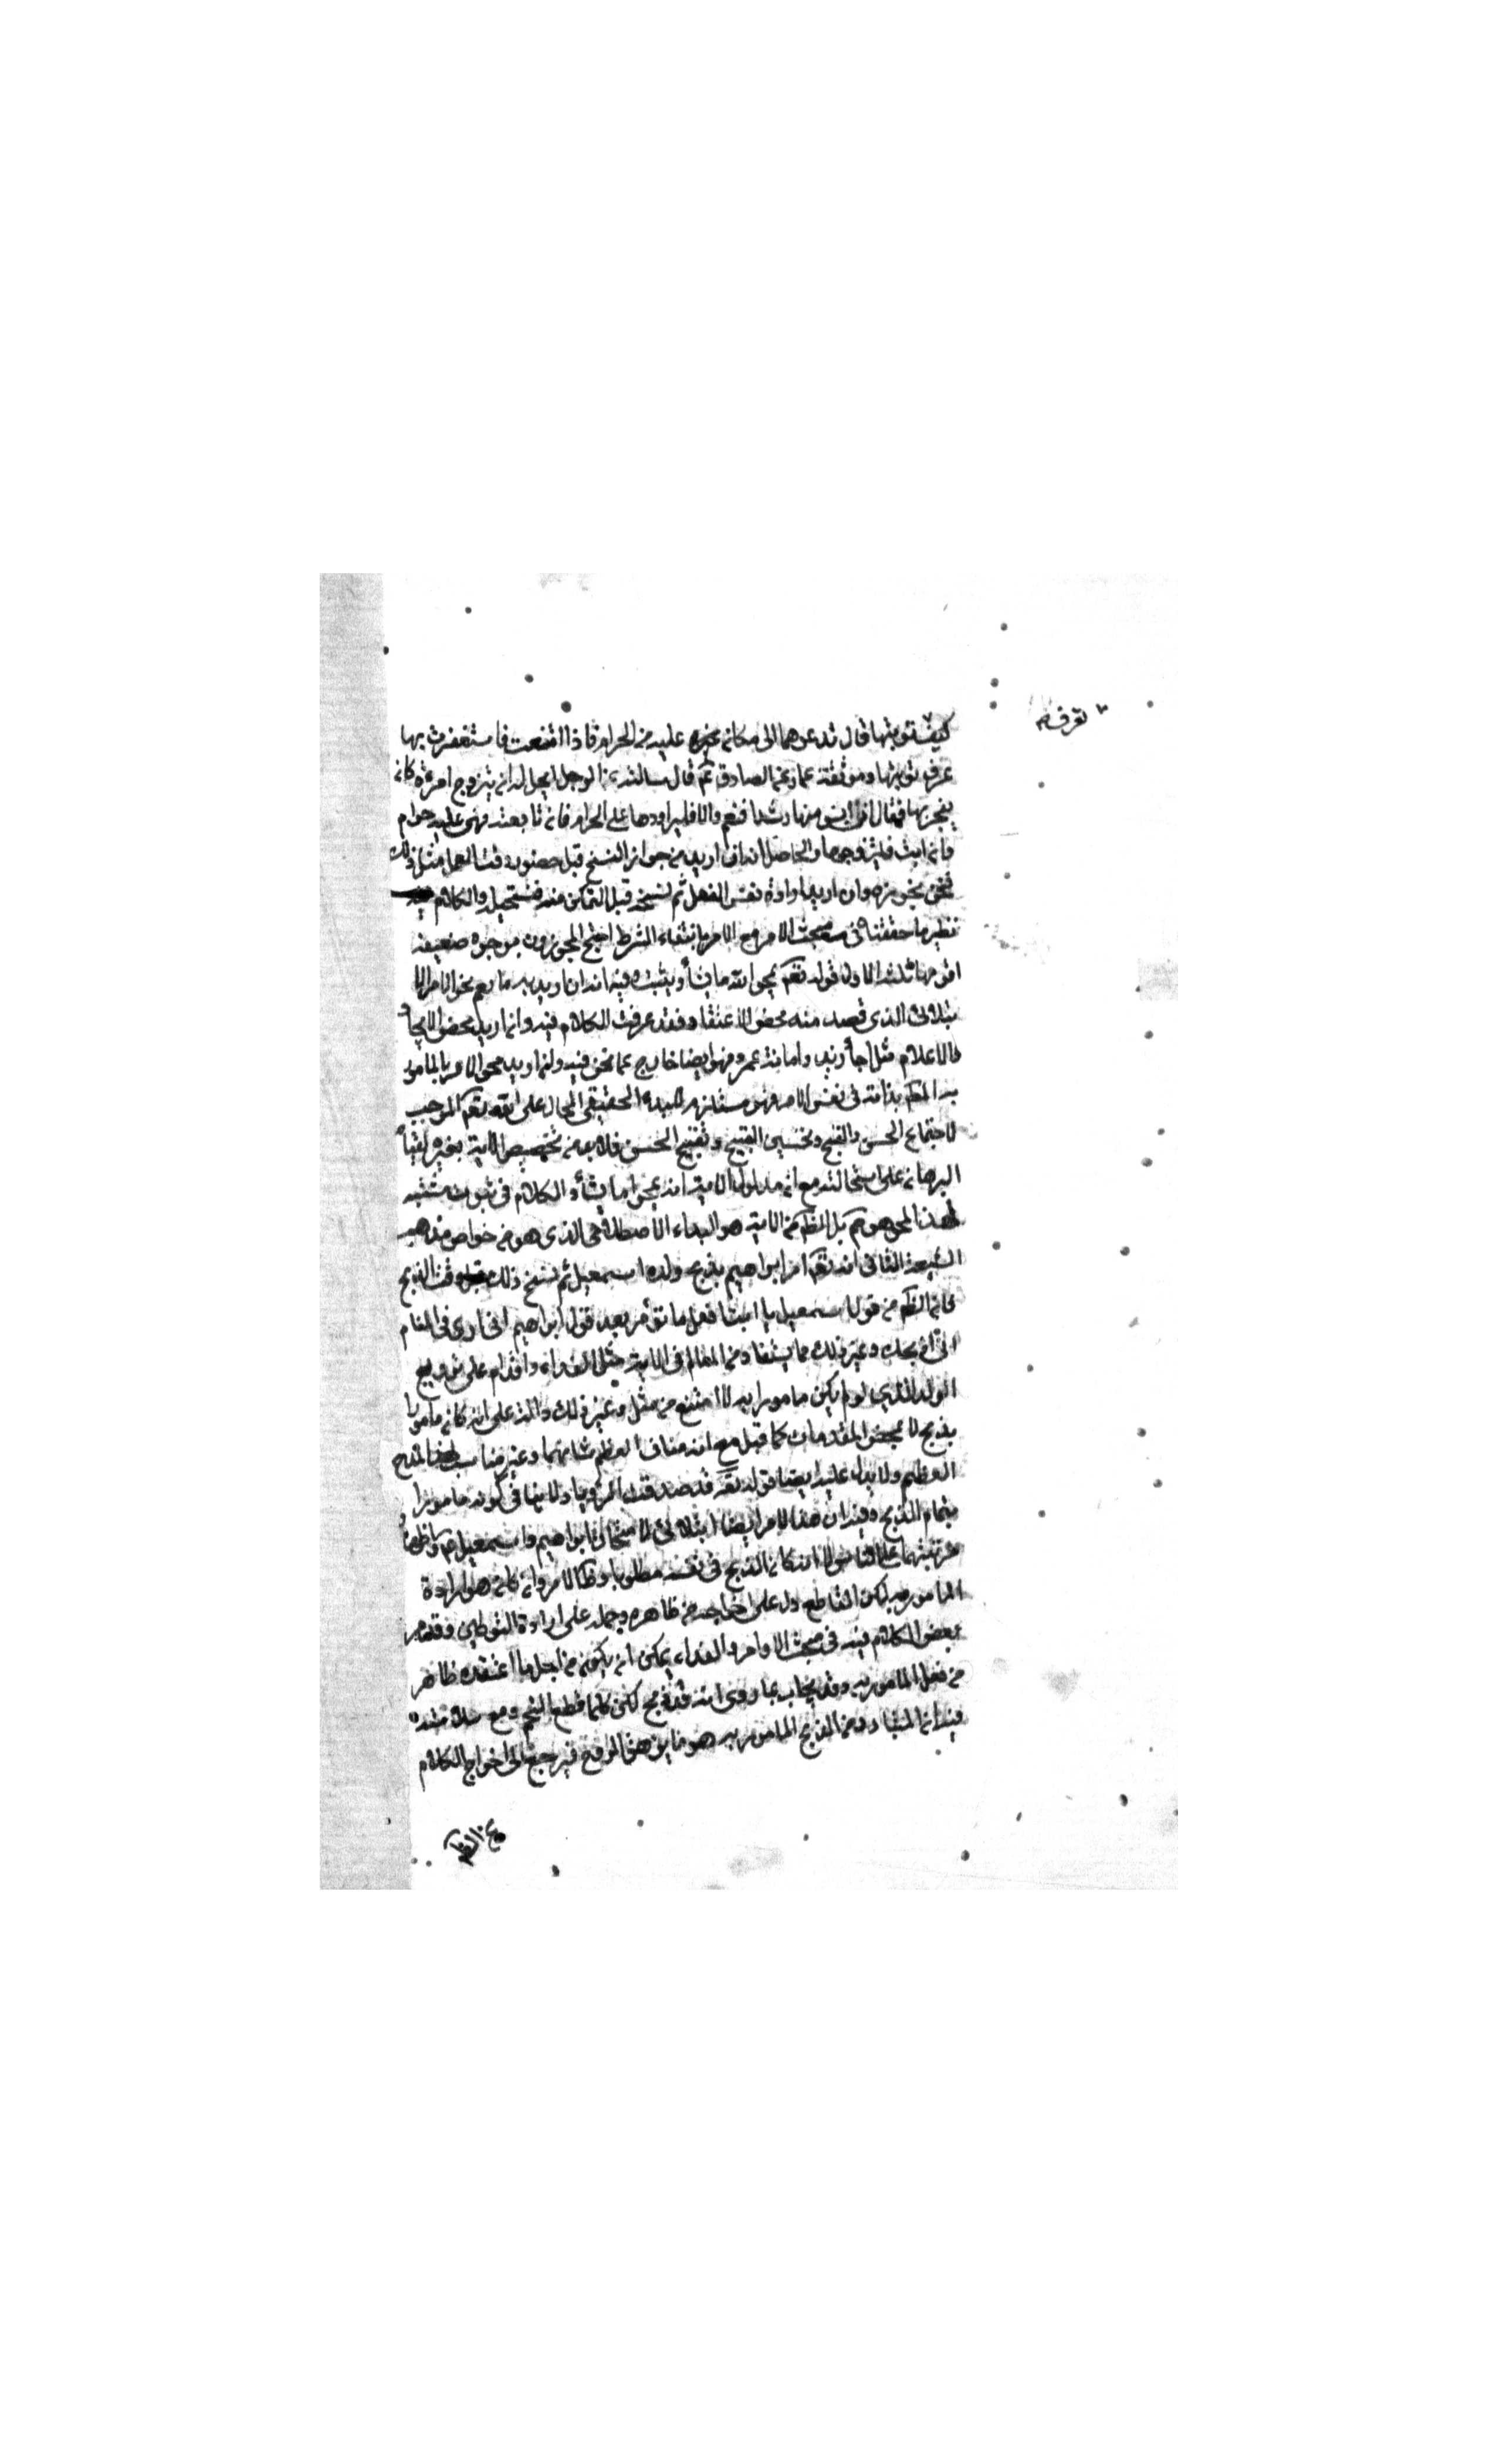 تعرف
كيف توبتها قال تدعوها الى ما كانت عليه من الحرام فاذا امتنعت فاستغفرت ربها
عرف توبتها وموثقة عمار عن الصادق ع قال سالته عن الرجل ايحل له ان يتزوج امرءة كان
يفجر بها فقال ان انس منها رشدا فنعم والا فليراودها على الحرام فان تابعته فهى عليه حرام
وان ابت فليتزوجها والحاصل انه ان اريد من جواز النسخ قبل حضور وقت العمل مثل ذلك
فنحن نجوزه وان اريد ارادة نفس الفعل ثم نسخه قبل التمكن منه فنستحيله والكلام فيه
نظير ما حققناه فى مبحث الامر مع الامر بانتفاء الشرط احتج المجوزون بوجوه ضعيفة
اقومها ثلثة الاول قوله تعم يمحو الله ما يشاء ويثبت وفيه انه ان اريد به ما يعم نحو الامر الا
بتلائى الذى قصد منه محض الاعتقاد فقد عرفت الكلام فيه وان اريد محض الايجاد
والاعلام مثل احياء زيد واماتة عمرو فهو ايضا خارج عما نحن فيه وان اريد محو الامر بالمامور
به المطلوب بذاته فى نفس الامر فهو مستلزم للبداء الحقيقى المحال على الله تعم الموجب
لاجتماع الحسن والقبح وتحسين القبيح وتقبيح الحسن فلا بد من تخصيص الاية بغيره لقيام
البرهان على استحالته مع ان مدلول الاية انه يمحو ما يشاء والكلام فى ثبوت مشيته
لهذا المحو هو كم بل الظم من الاية هو البداء الاصطلاحى الذى هو من خواص مذهب
الشيعة الثانى انه تعم امر ابراهيم بذبح ولده اسمعيل ثم نسخ ذلك قبل وقت الذبح
فان الظم من قول اسمعيل يا ابت افعل ما تؤمر بعد قول ابراهيم انى ارى فى المنام
انى اذبحك وغير ذلك مما يستفاد من المقام فى الاية مثل الفداء واقدام على ترويع
الولد الذي لو لم يكن مامورا به لامتنع من مثله وغير ذلك دالة على انه كان مامورا
بذبح لا بمحض المقدمات كما قيل مع انه مناف لعظم شانهما وغير مناسب لهذا المدح
العظيم ولا يدل عليه ايضا قوله تعم قد صدقت الرؤيا ولا ينافى كونه مامورا
بتمام الذبح وفيه ان هذا الامر ايضا ابتلائى لامتحان ابراهيم واسمعيل ع واظهار
مرتبتهما على الناس لا انه كان الذبح فى نفسه مطلوبا وظ الامر وان كان هو ارادة
المامور به لكن القاطع دل على اخراجه من ظاهره وحمله على ارادة التوطين وقد مر
بعض الكلام فيه فى مبحث الاوامر والفداء يمكن ان يكون من اجل ما اعتقده ظاهر
من فعل المامور به وقد يجاب بما روى انه قد ذبح لكن كلما قطع التحم ومع سلامته
فيه ان المتبادر من الذبح المامور به هو ما يزهق الروح فيرجع الى اخراج الكلام